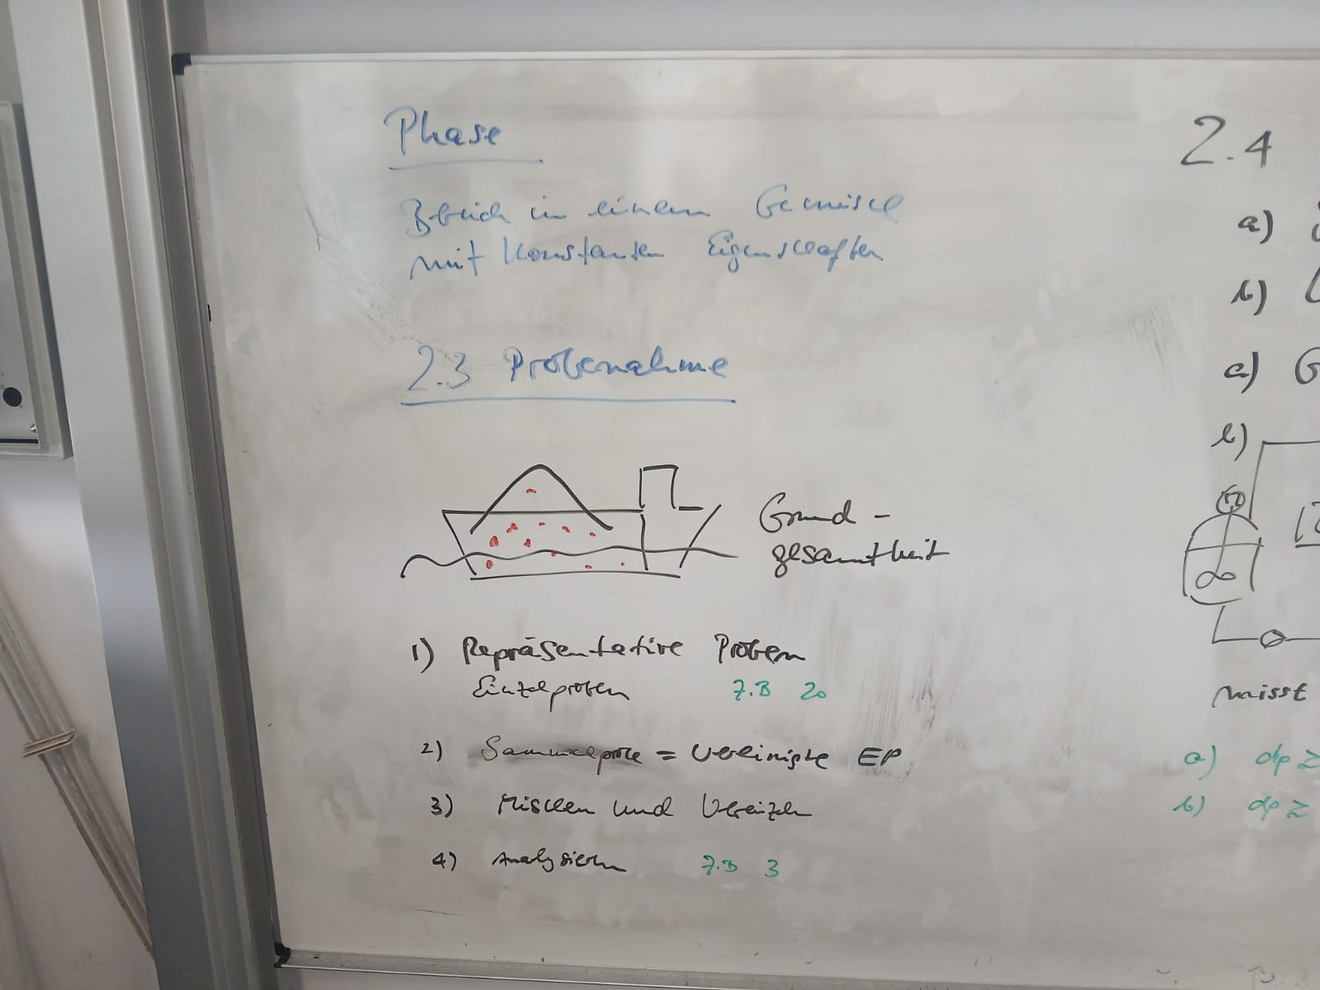 Phase
Bereich in einem Gemisch
mit konstanten Eigenschaften
2.3 Probenahme
Grund-
gesamtheit
1) Repräsentative Proben
Einzelproben z.B 20
2) Sammelprobe = Vereinigte EP
3) Mischen und
4) Analysieren z.B 3
2.4
a)
b)
a) G
b)
misst
a) dp ≥
b) dp ≥